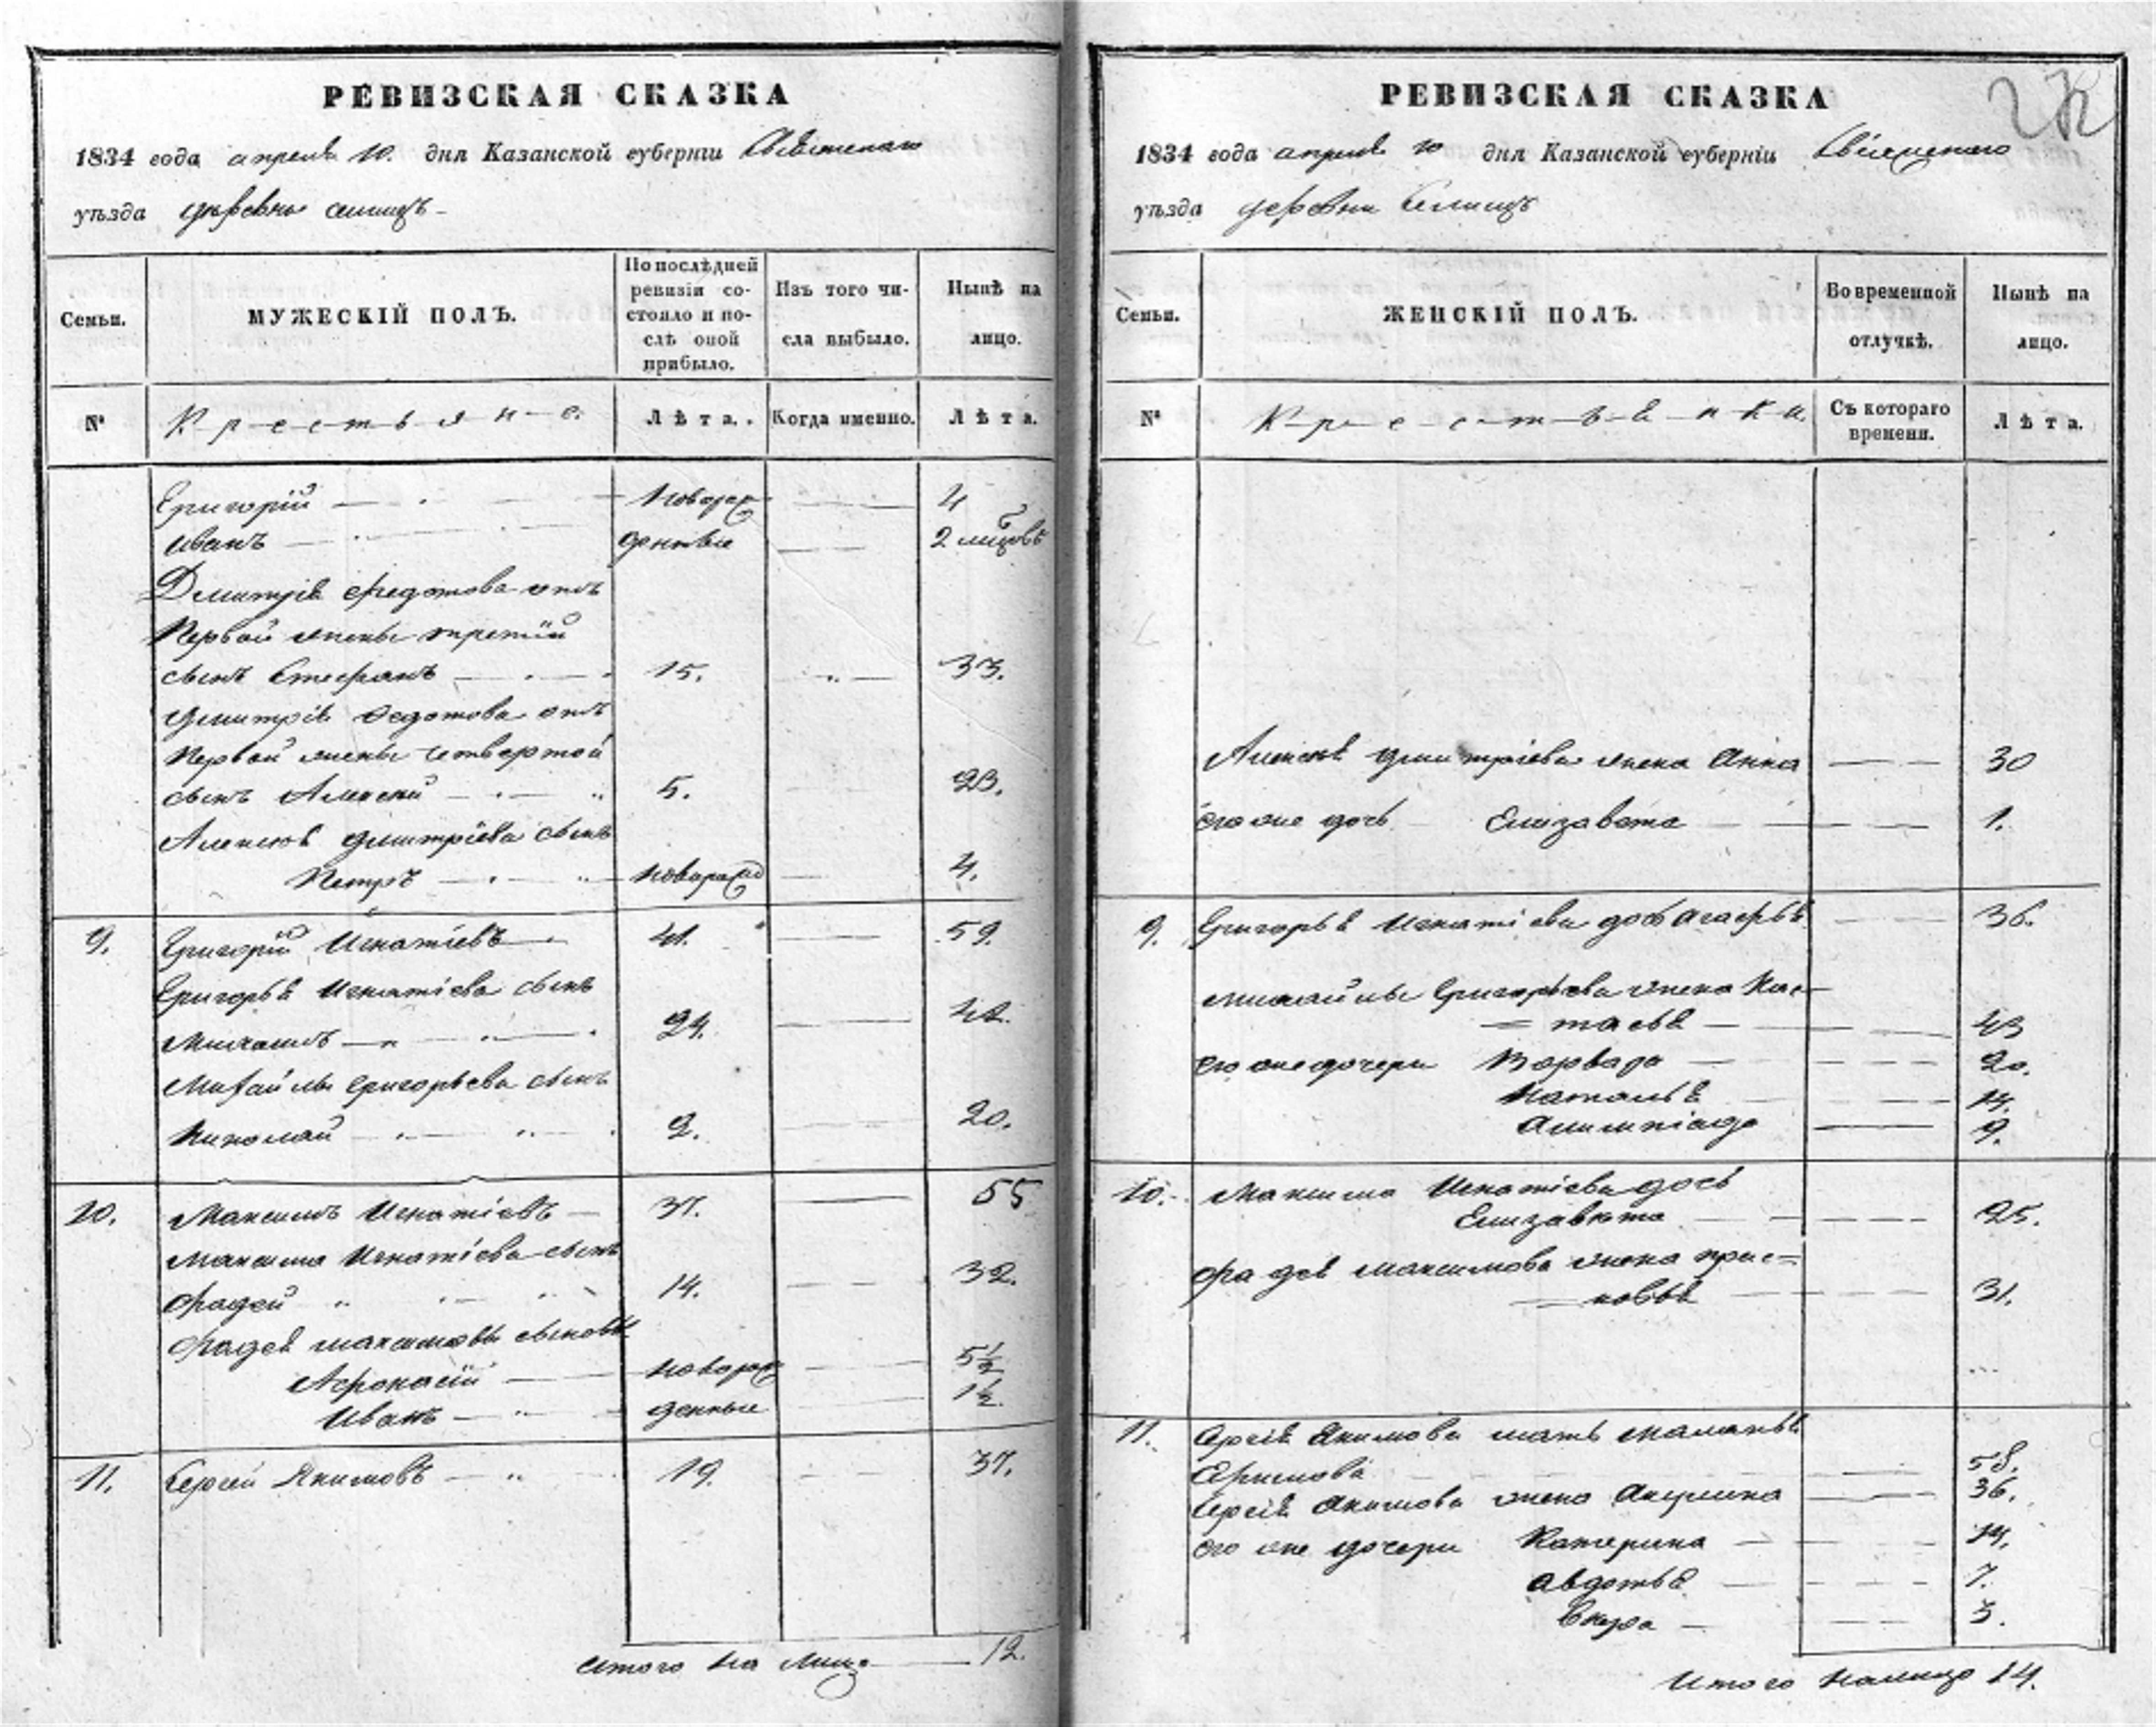 РЕВИЗСКАЯ СКАЗКА
1834 года апреля 10. дня Казанской губерніи Свіяжскаго
уѣзда деревни селищъ
Семьи. МУЖЕСКІЙ ПОЛЪ. По послѣдней ревизіи состояло и послѣ оной прибыло. Изъ того числа выбыло. Нынѣ на лицо.
№ Крестьяне. Лѣта. Когда именно. Лѣта.
Григорій новорож 4
Иванъ денные 2 мѣсцовъ
Дмитрія Федотова отъ
первой жены третій
сынъ Стефанъ 15. 33.
Дмитрія Федотова отъ
первой жены четвертой
сынъ Алексей 5. 23.
Алексея Дмитріева сынъ
Петръ новорожд 4.
9. Григорій Игнатіевъ 41. 59.
Григорья Игнатіева сынъ
Михаилъ 24. 42.
Михайлы Григорьева сынъ
Николай 2. 20.
10. Максимъ Игнатіевъ 37. 55
Максима Игнатіева сынъ
Фадей 14. 32.
Фадея Максимова сыновья
Афонасій новорож 5 1/2
Иванъ денные 1 1/2
11. Сергей Якимовъ 19. 37.
Итого на лицо 12.
РЕВИЗСКАЯ СКАЗКА
1834 года апреля 10 дня Казанской губерніи Свіяжскаго
уѣзда деревни Селищъ
Семьи. ЖЕНСКІЙ ПОЛЪ. Во временной отлучкѣ. Нынѣ на лицо.
№ Крестьянки Съ котораго времени. Лѣта.
Алексея Дмитріева жена Анна 30
его же дочь Елизавета 1.
9. Григорья Игнатіева дочь Агафья 36.
Михайлы Григорьева жена Нас
=тасья 43
его же дочери Варвара 20.
Наталья 14.
Алимпіада 9.
10. Максима Игнатіева дочь
Елизавета 25.
Фадея Максимова жена прас=
=ковья 31.
11. Сергея Якимова мать маланья
Ефимова 58.
Сергея Якимова жена Акулина 36.
его же дочери Катерина 14.
Авдотья 7.
Фекла 3.
Итого налицо 14.